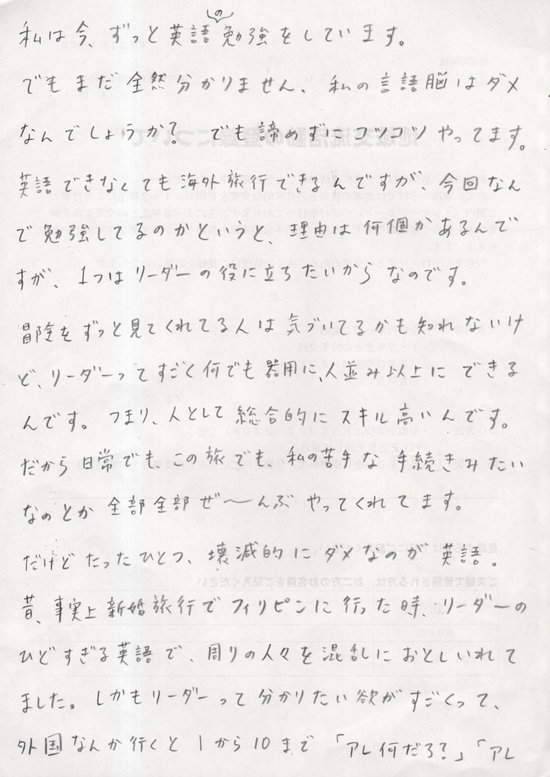 私は今、ずっと英語の勉強をしています。
でもまだ全然分かりません、私の言語脳はダメ
なんでしょうか？ でも諦めずにコツコツやってます。
英語できなくても海外旅行できるんですが、今回なん
で勉強してるのかというと、理由は何個かあるんで
すが、1つはリーダーの役に立ちたいからなのです。
冒険をずっと見てくれてる人は気づいてるかも知れないけ
ど、リーダーってすごく何でも器用に、人並み以上にできる
んです。つまり、人として総合的にスキル高いんです。
だから日常でも、この旅でも、私の苦手な手続きみたい
なのとか全部全部ぜ〜んぶやってくれてます。
だけどたったひとつ、壊滅的にダメなのが英語。
昔、事実上新婚旅行でフィリピンに行った時、リーダーの
ひどすぎる英語で、周りの人々を混乱におとしいれて
ました。しかもリーダーって分かりたい欲がすごくって、
外国なんか行くと1から10まで「アレ何だろ？」「アレ